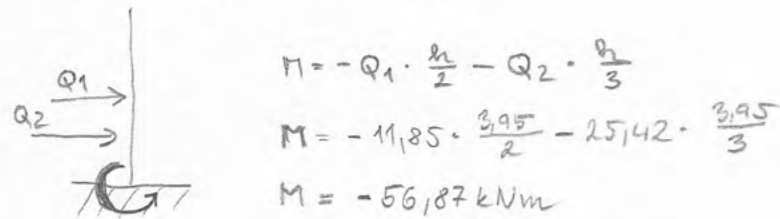 Q1
Q2
M = - Q1 · h/2 - Q2 · h/3
M = - 11,85 · 3,95/2 - 25,42 · 3,95/3
M = - 56,87 kNm